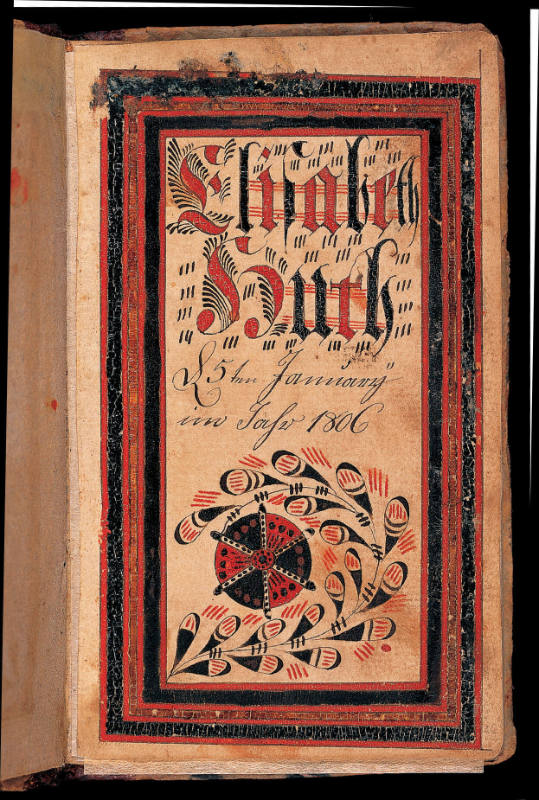 Elisabeth
Huth
D 5ten January
im Jahr 1806